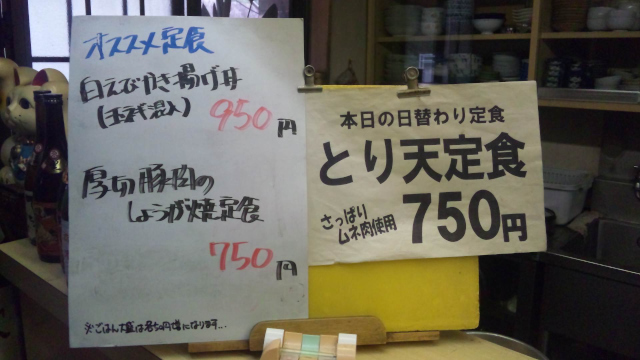 オススメ定食
白えびかき揚げ丼
950円
厚切豚肉の
しょうが焼定食
750円
※ごはん大盛は各50円増になります...
本日の日替わり定食
とり天定食
さっぱり
ムネ肉使用
750円